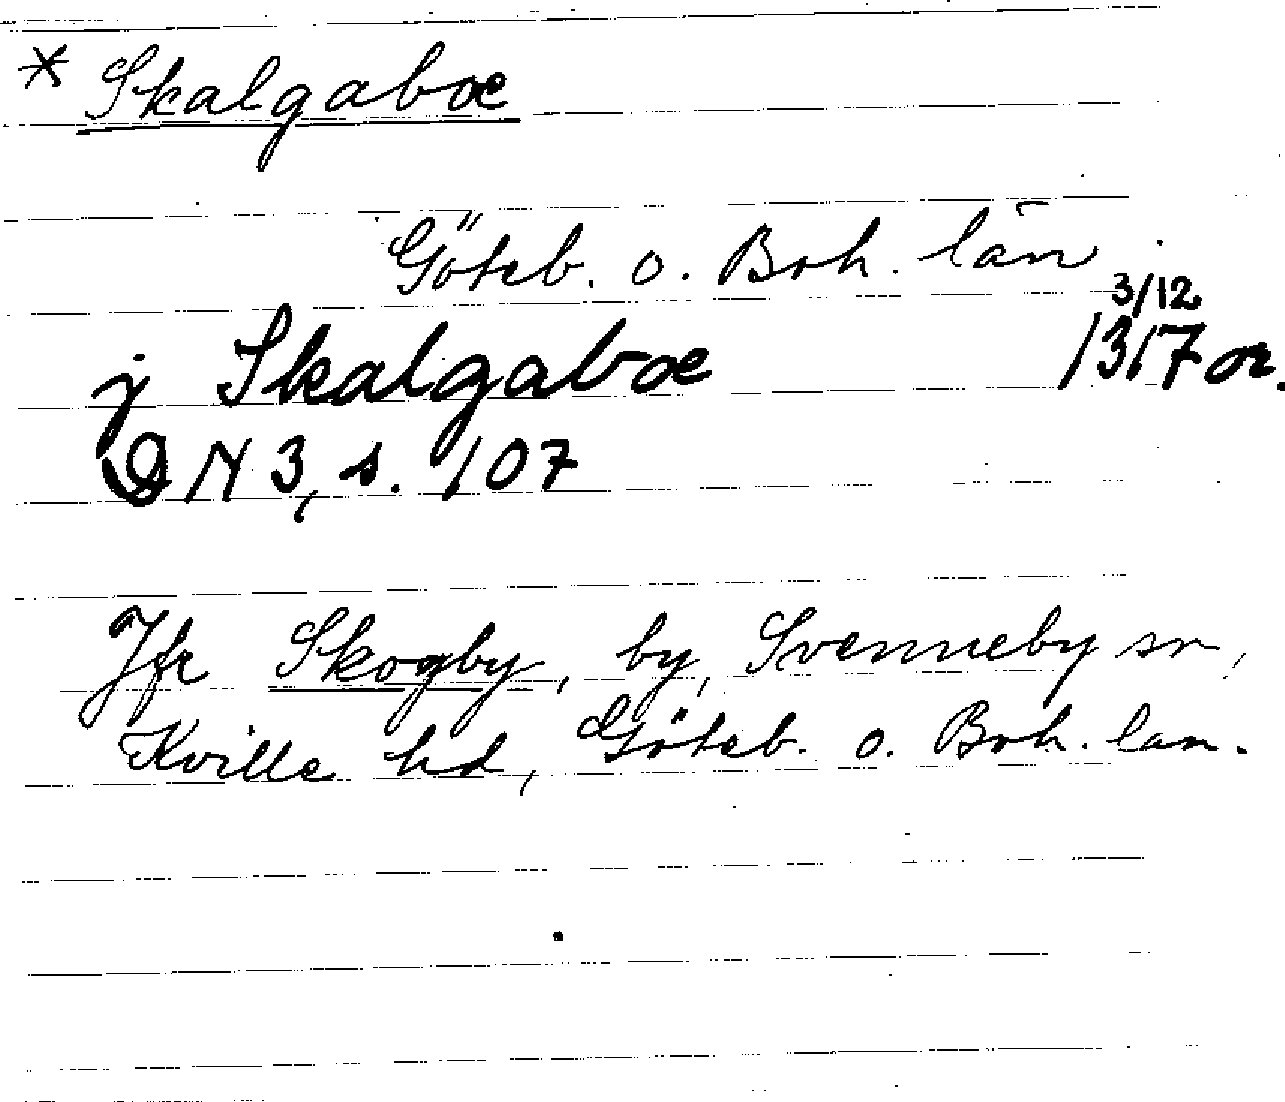 * Skalgaboe
Göteb. o. Boh. län
j Skalgaboe 3/12 1317 or.
DN 3, s. 107
Jfr Skogby, by, Svenneby sn,
Kville hd, Göteb. o. Boh. län.